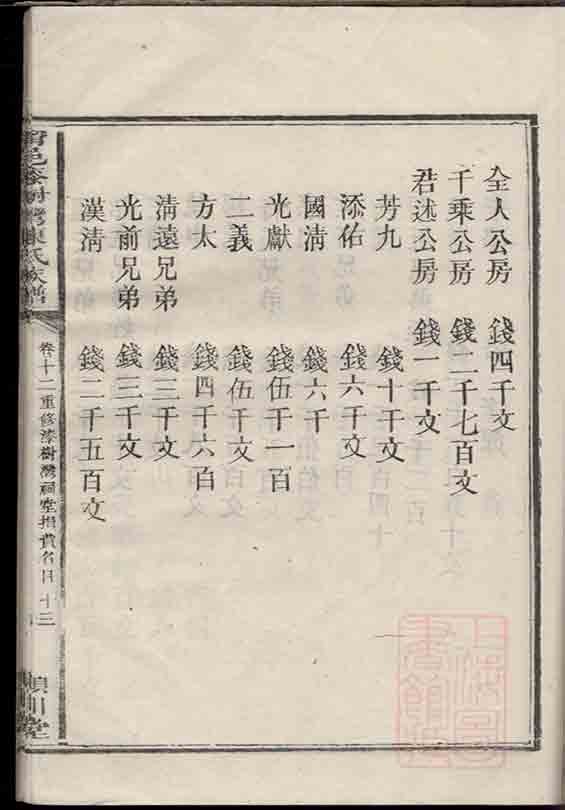 全人公房 錢四千文
千乘公房 錢二千七百文
君述公房 錢一千文
芳九 錢十千文
添佑 錢六千文
國清 錢六千
光獻 錢伍千一百
二義 錢伍千文
方太 錢四千六百
清遠兄弟 錢三千文
光前兄弟 錢三千文
漢清 錢二千五百文
邑漆樹灣陳氏族譜
卷十二重修漆樹灣祠堂捐貲名目 十三
潁川堂
上海圖書館藏